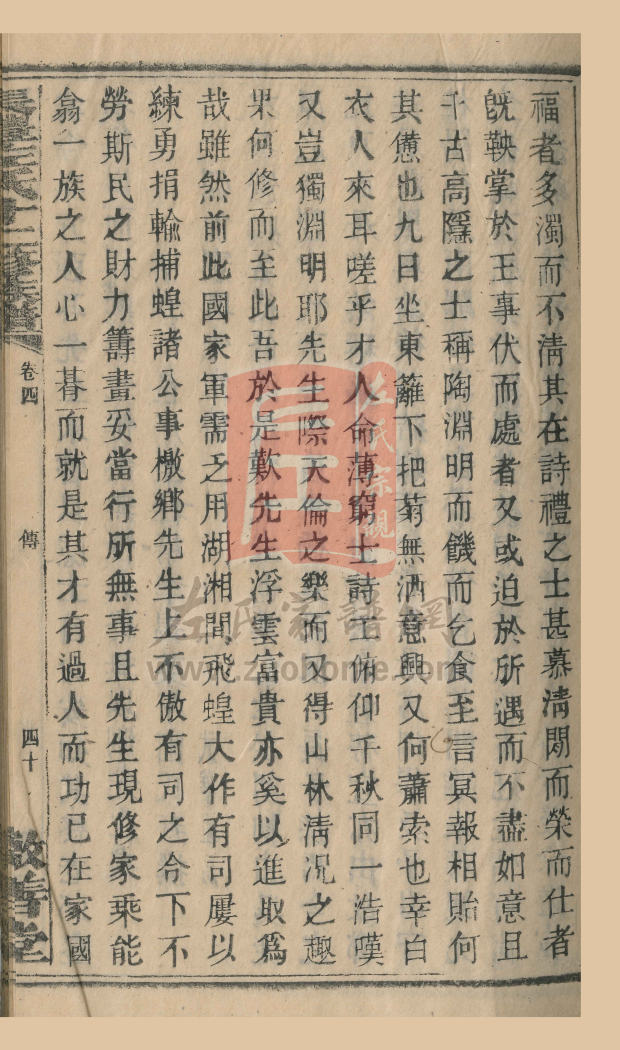 福者多濁而不淸其在詩禮之士甚慕淸閒而榮而仕者
旣鞅掌於王事伏而處者又或迫於所遇而不盡如意且
千古高隱之士稱陶淵明而饑而乞食至言冥報相貽何
其憊也九日坐東籬下把菊無酒意興又何蕭索也幸白
衣人來耳嗟乎才人命薄窮士詩工俯仰千秋同一浩嘆
又豈獨淵明耶先生際天倫之樂而又得山林淸况之趣
果何修而至此吾於是歎先生浮雲富貴亦奚以進取爲
哉雖然前此國家軍需乏用湖湘間飛蝗大作有司屢以
練勇捐輸捕蝗諸公事檄鄉先生上不傲有司之令下不
勞斯民之財力籌畫妥當行所無事且先生現修家乘能
翕一族之人心一朞而就是其才有過人而功已在家國
卷四
傳
四十
敦善堂
左氏宗親
左氏家譜網
www.zuohome.com